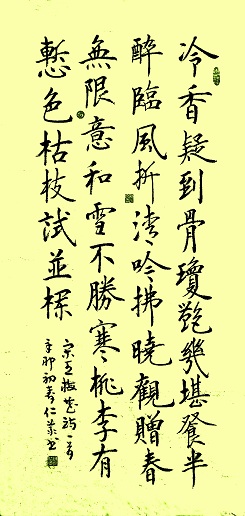 冷香疑到骨瓊艷幾堪餐半
醉臨風折清吟拂曉觀贈春
無限意和雪不勝寒桃李有
慙色枯枝試並
宋王梅花詩一首
辛卯初春仁書